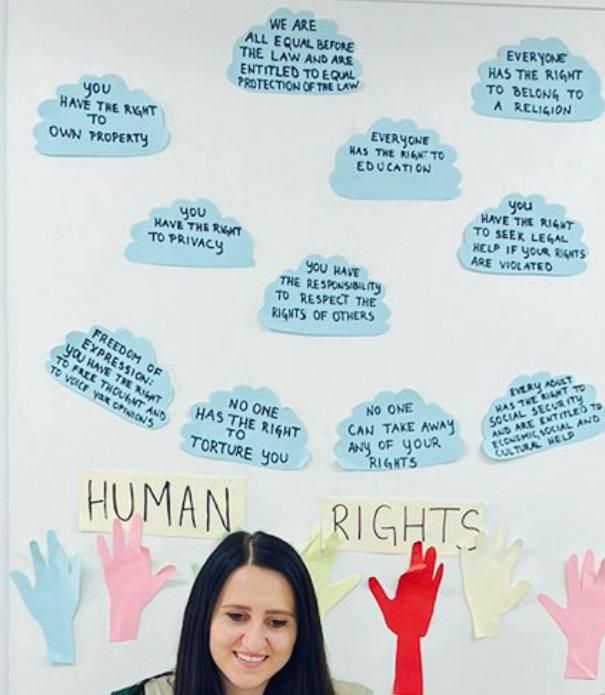 WE ARE
ALL EQUAL BEFORE
THE LAW AND ARE
ENTITLED TO EQUAL
PROTECTION OF THE LAW
EVERYONE
HAS THE RIGHT
TO BELONG TO
A RELIGION
YOU
HAVE THE RIGHT
TO
OWN PROPERTY
EVERYONE
HAS THE RIGHT TO
EDUCATION
YOU
HAVE THE RIGHT
TO PRIVACY
YOU
HAVE THE RIGHT
TO SEEK LEGAL
HELP IF YOUR RIGHTS
ARE VIOLATED
YOU HAVE
THE RESPONSIBILITY
TO RESPECT THE
RIGHTS OF OTHERS
FREEDOM OF
EXPRESSION:
YOU HAVE THE RIGHT
TO FREE THOUGHT AND
TO VOICE YOUR OPINIONS
NO ONE
HAS THE RIGHT
TO
TORTURE YOU
NO ONE
CAN TAKE AWAY
ANY OF YOUR
RIGHTS
EVERY ADULT
HAS THE RIGHT TO
SOCIAL SECURITY
AND ARE ENTITLED TO
ECONOMIC, SOCIAL AND
CULTURAL HELP
HUMAN
RIGHTS